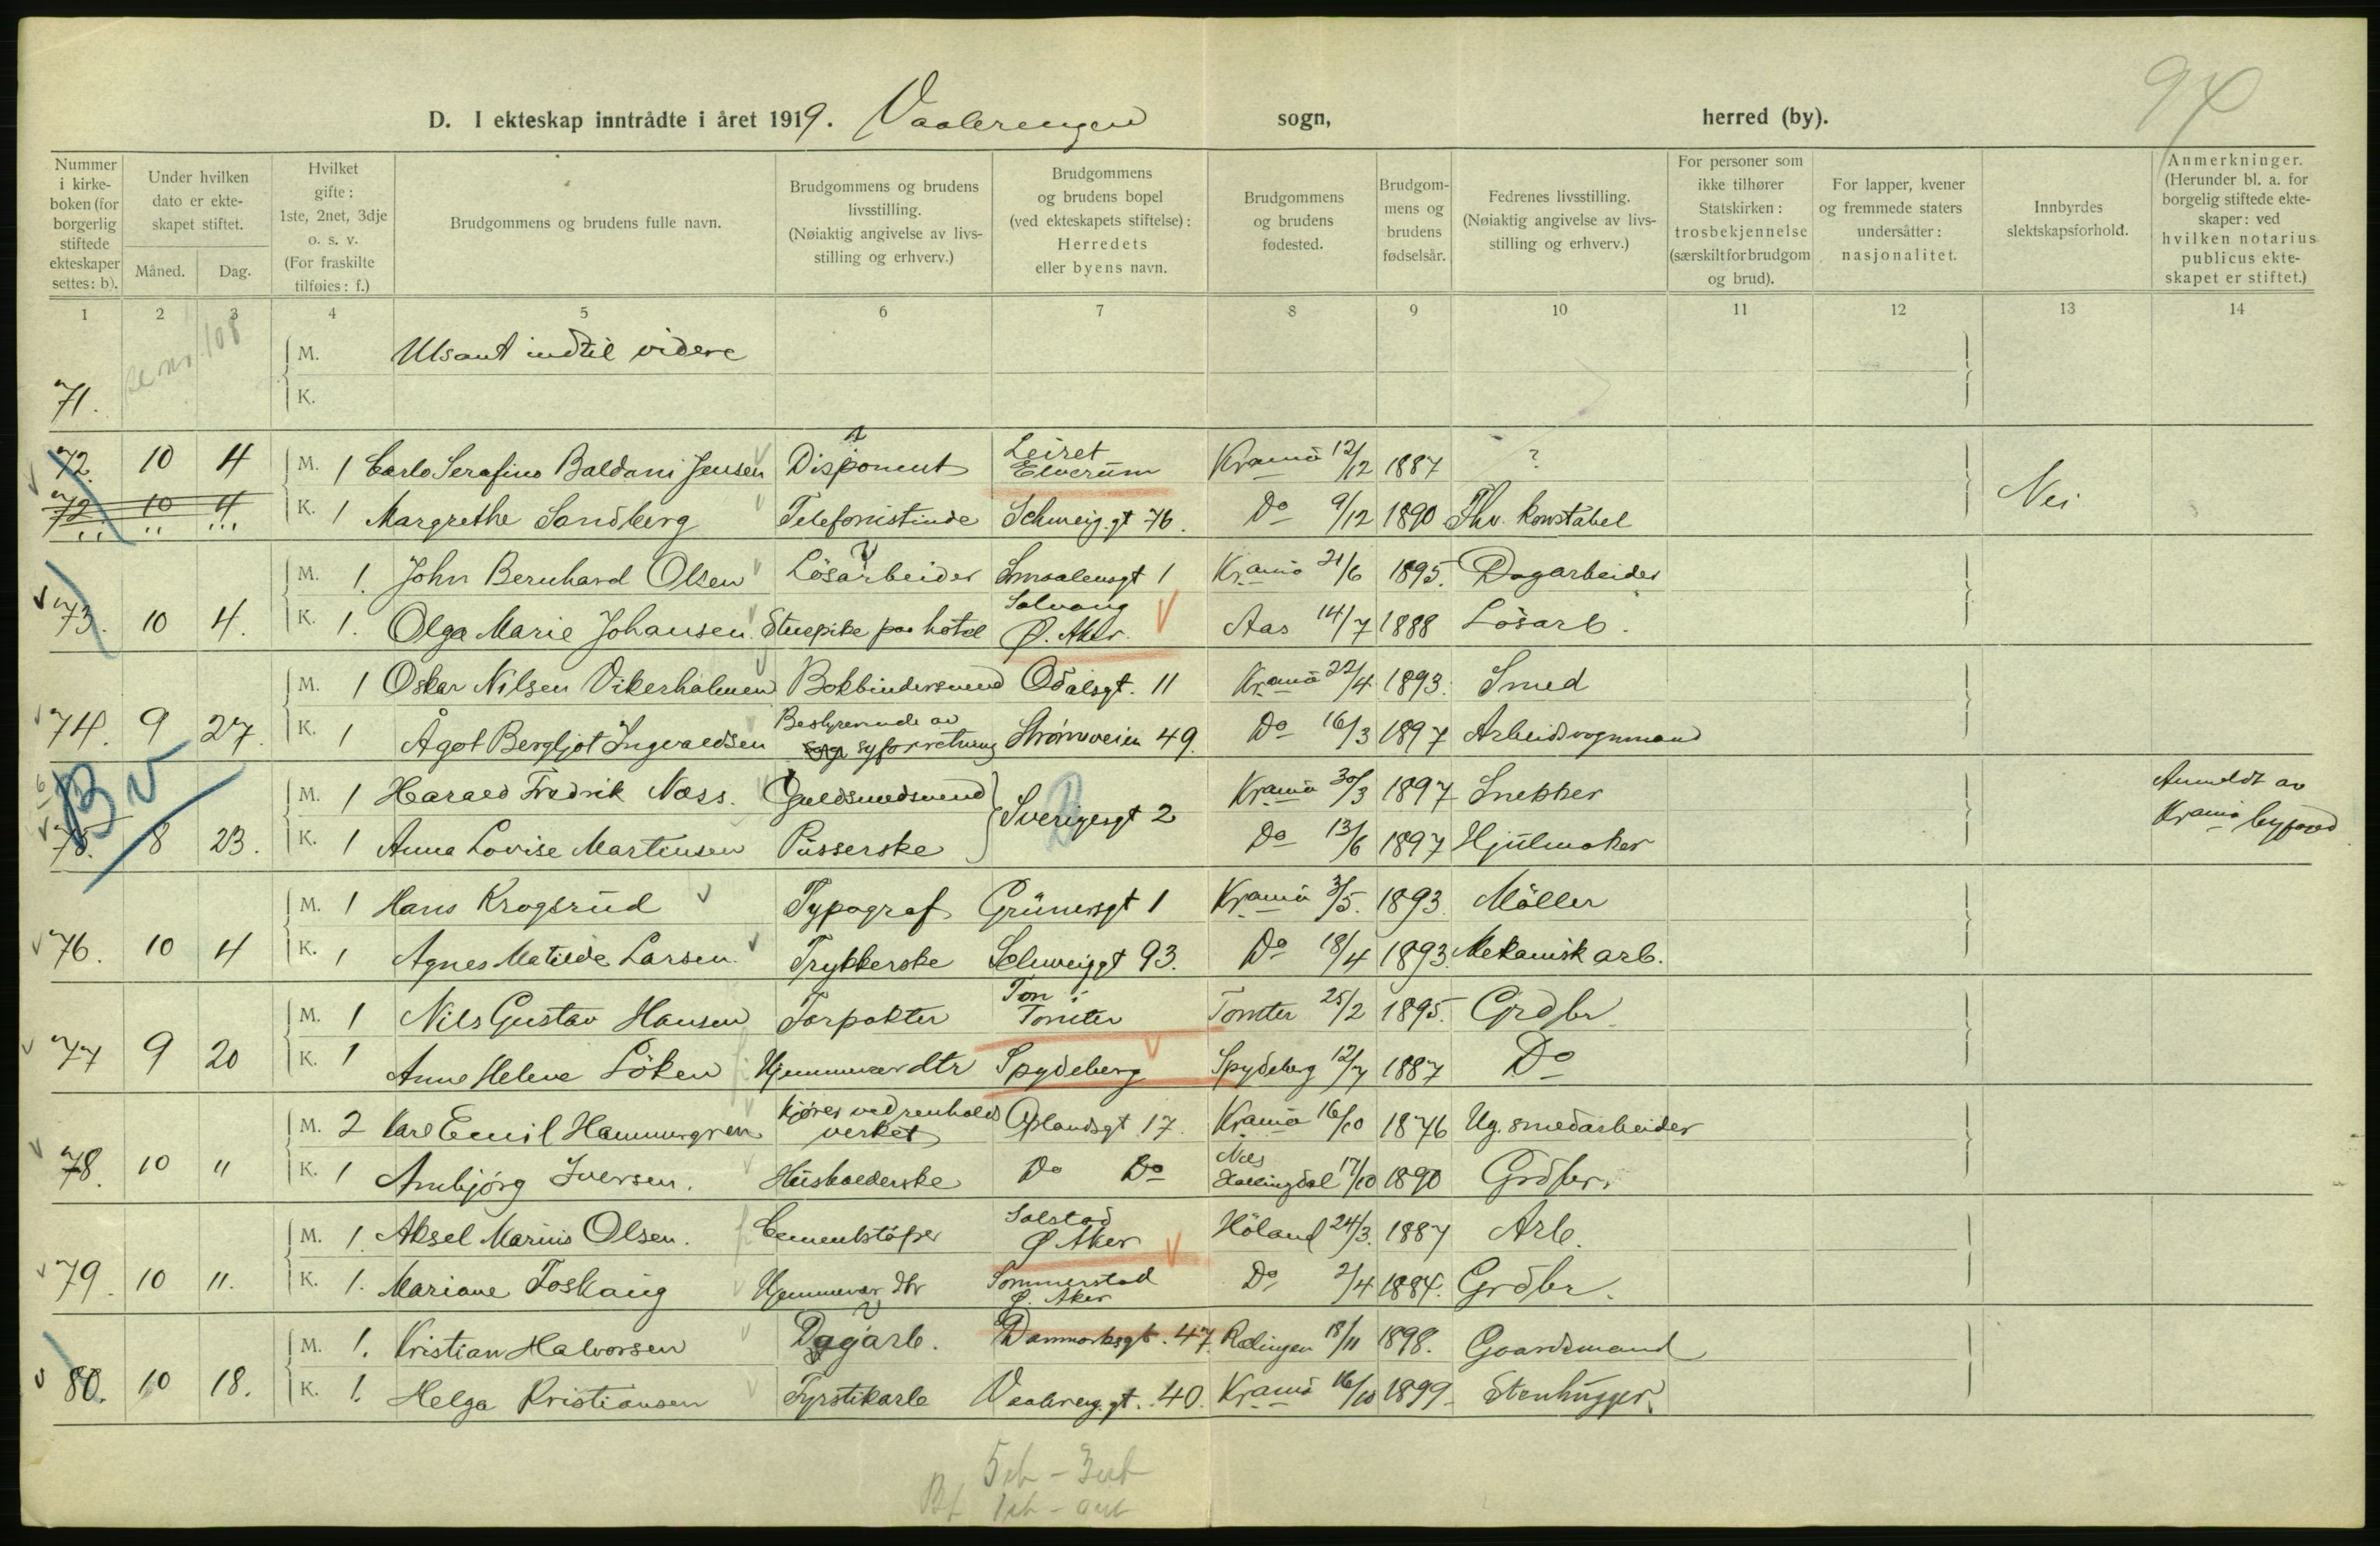 94
D. I ekteskap inntrådte i året 1919. Vaalerengen sogn, herred (by).
Nummer i kirke-boken (for borgerlig stiftede ekteskaper settes: b).
Under hvilken dato er ekte-skapet stiftet.
Måned. Dag.
Hvilket gifte: 1ste, 2net, 3dje o. s. v. (For fraskilte tilføies: f.)
Brudgommens og brudens fulle navn.
Brudgommens og brudens livsstilling. (Nøiaktig angivelse av livs-stilling og erhverv.)
Brudgommens og brudens bopel (ved ekteskapets stiftelse): Herredets eller byens navn.
Brudgommens og brudens fødested.
Brudgom-mens og brudens fødselsår.
Fedrenes livsstilling. (Nøiaktig angivelse av livs-stilling og erhverv.)
For personer som ikke tilhører Statskirken: trosbekjennelse (særskilt for brudgom og brud).
For lapper, kvener og fremmede staters undersåtter: nasjonalitet.
Innbyrdes slektskapsforhold.
Anmerkninger. (Herunder bl. a. for borgelig stiftede ekte-skaper: ved hvilken notarius publicus ekte-skapet er stiftet.)
1 2 3 4 5 6 7 8 9 10 11 12 13 14
se nr. 108
M. Utsant indtil videre
71. K.
72. 10 4 M. 1 Carlo Serafino Baldani Jensen Disponent Leiret Elverum Kr.ania 12/12 1887 ?
72. 10 4 K. 1 Margrethe Sandberg Telefonistinde Schweig.gt 76. Do 9/12 1890 Fhv. konstabel Nei
M. 1. John Bernhard Olsen Løsarbeider Smaalensgt 1 Kr.ania 21/6 1895. Dagarbeider
73. 10 4. K. 1. Olga Marie Johansen. Stuepike paa hotel Solvang Ø. Aker. Aas 14/7 1888 Løsarb.
M. 1 Oskar Nilsen Vikerholmen Bokbindersvend Odalsgt. 11 Kr.ania 22/4 1893. Smed
74. 9 27. K. 1 Ågot Bergljot Ingvaldsen Bestyrerinde av syforretning Strømsveien 49. Do 16/3 1897 Arbeidsvognmand
Bv
M. 1 Harald Fredrik Næss. Guldsmedsvend Sverigesgt 2 Kr.ania 30/3 1897 Snekker Anmeldt av Kr.ania byfoged
75. 8 23. K. 1 Anna Lovise Martinsen Pusserske Do 13/6 1897 Hjulmaker
M. 1 Hans Krogsrud Typograf Grünersgt 1 Kr.ania 3/5. 1893. Møller
76. 10 4 K. 1 Agnes Matilde Larsen. Trykkerske Schweiggt 93. Do 18/4 1893. Mekanisk arb.
M. 1 Nils Gustav Hansen Forpakter Ton i Tomter Tomter 25/2 1895. Grdbr
77 9 20 K. 1 Anne Helene Løken Hjemmeværdtr Spydeberg Spydeberg 12/7 1887 Do
M. 2 Karl Emil Hammergren Kjører ved renholds verket Oplandsgt 17. Kr.ania 16/10 1876 Ug. smedarbeider
78. 10 " K. 1 Ambjørg Iversen. Husholderske Do Do Nes Hallingdal 17/10 1890 Grdbr.
M. 1. Aksel Marius Olsen. Cementstøper Solstad Ø Aker Høland 24/3. 1887 Arb.
79. 10 11. K. 1. Mariane Toskaug Hjemmevær dtr Sommerstad Ø. Aker Do 2/4 1884. Grdbr.
M. 1. Kristian Halvorsen Dagarb. Danmarksgt. 47. Rælingen 18/11 1898. Gaardsmand
80. 10 18. K. 1. Helga Kristiansen Fyrstikarb Vaalereng.gt. 40. Kr.ania 16/10 1899 Stenhugger.